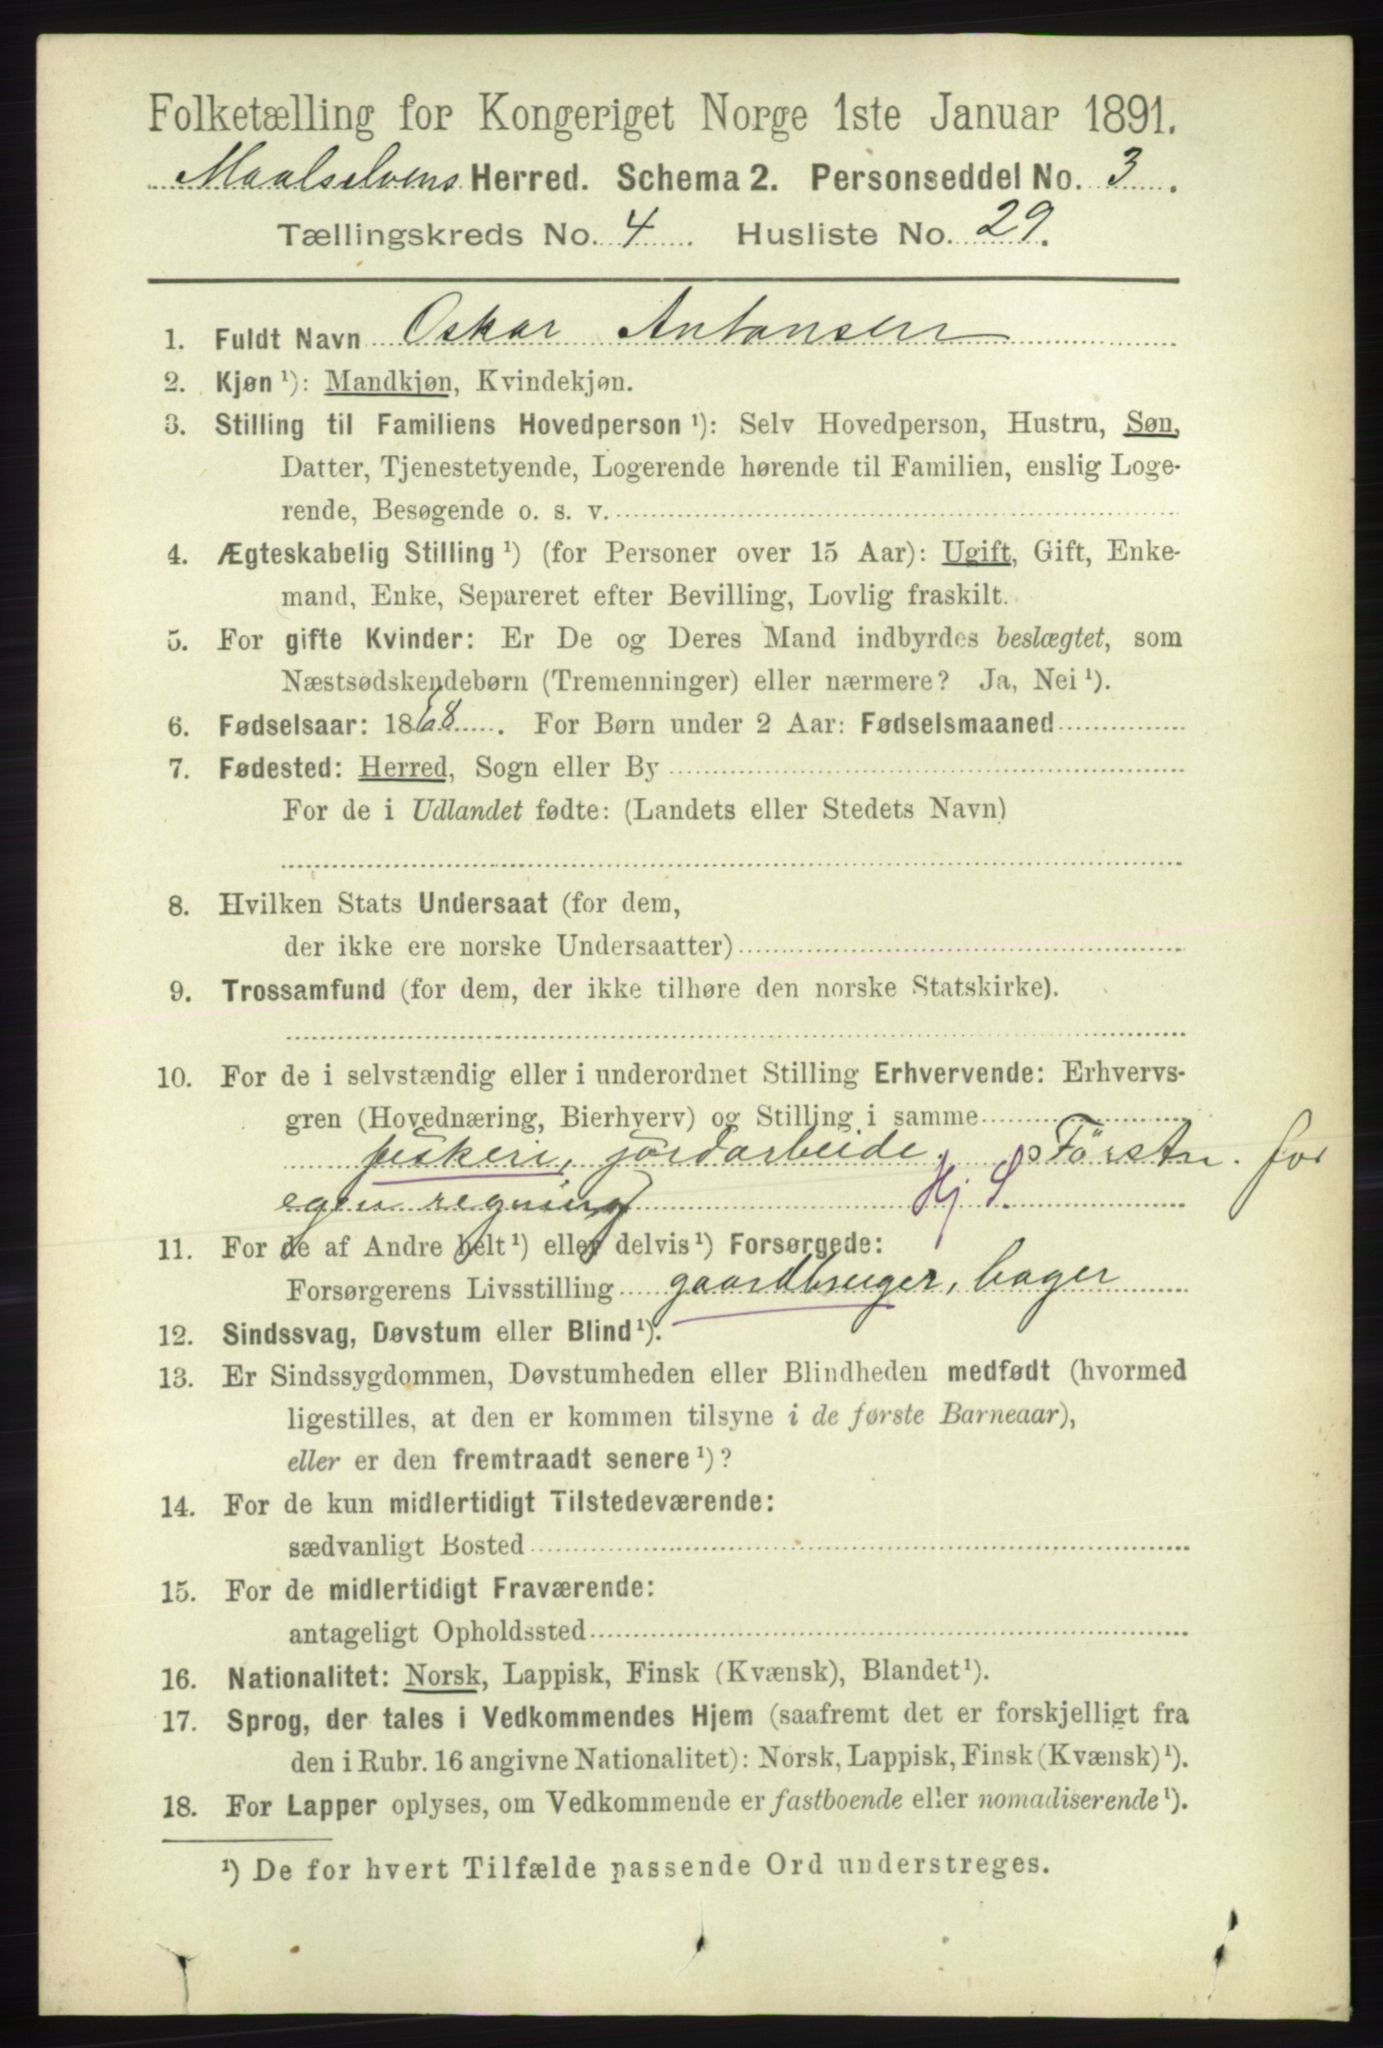 Folketælling for Kongeriget Norge 1ste Januar 1891.
Maalselvens Herred. Schema 2. Personseddel No. 3.
Tællingskreds No. 4. Husliste No. 29.
1. Fuldt Navn Oskar Antonsen
2. Kjøn ¹): Mandkjøn, Kvindekjøn.
3. Stilling til Familiens Hovedperson ¹): Selv Hovedperson, Hustru, Søn,
Datter, Tjenestetyende, Logerende hørende til Familien, enslig Loge-
rende, Besøgende o. s. v.
4. Ægteskabelig Stilling ¹) (for Personer over 15 Aar): Ugift, Gift, Enke-
mand, Enke, Separeret efter Bevilling, Lovlig fraskilt.
5. For gifte Kvinder: Er De og Deres Mand indbyrdes beslægtet, som
Næstsødskendebørn (Tremenninger) eller nærmere? Ja, Nei ¹).
6. Fødselsaar: 1868. For Børn under 2 Aar: Fødselsmaaned
7. Fødested: Herred, Sogn eller By
For de i Udlandet fødte: (Landets eller Stedets Navn)
8. Hvilken Stats Undersaat (for dem,
der ikke ere norske Undersaatter)
9. Trossamfund (for dem, der ikke tilhøre den norske Statskirke).
10. For de i selvstændig eller i underordnet Stilling Erhvervende: Erhvervs-
gren (Hovednæring, Bierhverv) og Stilling i samme
fiskeri, jordarbeide, for
egen regning Hj. S.
11. For de af Andre helt ¹) eller delvis ¹) Forsørgede:
Forsørgerens Livsstilling gaardbruger, bager
12. Sindssvag, Døvstum eller Blind ¹).
13. Er Sindssygdommen, Døvstumheden eller Blindheden medfødt (hvormed
ligestilles, at den er kommen tilsyne i de første Barneaar),
eller er den fremtraadt senere ¹)?
14. For de kun midlertidigt Tilstedeværende:
sædvanligt Bosted
15. For de midlertidigt Fraværende:
antageligt Opholdssted
16. Nationalitet: Norsk, Lappisk, Finsk (Kvænsk), Blandet ¹).
17. Sprog, der tales i Vedkommendes Hjem (saafremt det er forskjelligt fra
den i Rubr. 16 angivne Nationalitet): Norsk, Lappisk, Finsk (Kvænsk) ¹).
18. For Lapper oplyses, om Vedkommende er fastboende eller nomadiserende ¹).
¹) De for hvert Tilfælde passende Ord understreges.